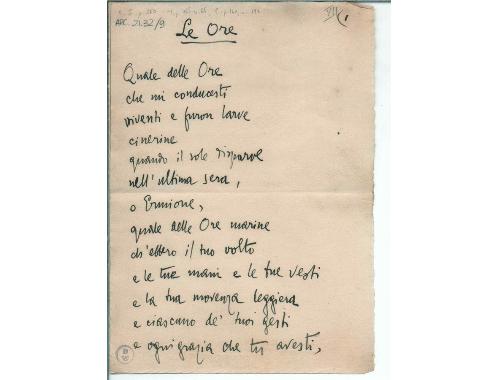 ARC. 21.32/9
VII, 1
Le Ore
Quale delle Ore
che mi conducesti
viventi e furon larve
cinerine
quando il sole disparve
nell'ultima sera,
o Ermione,
quale delle Ore marine
ch'ebbero il tuo volto
e le tue mani e le tue vesti
e la tua movenza leggiera
e ciascuno de' tuoi gesti
e ogni grazia che tu avesti,